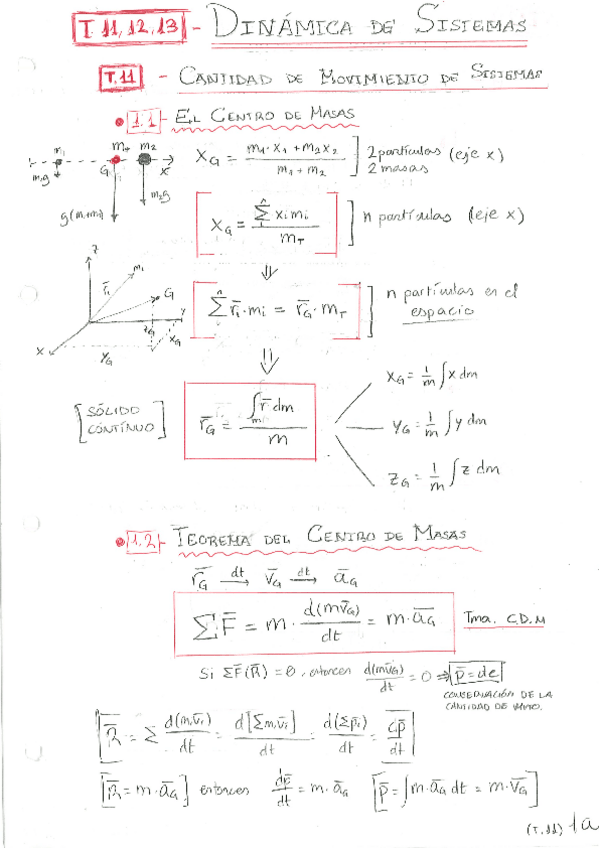 T.11,12,13 - DINÁMICA DE SISTEMAS
T.11 - CANTIDAD DE MOVIMIENTO DE SISTEMAS
1.1 - EL CENTRO DE MASAS
m₁ m_T m₂
G x
m₁g m₂g
g(m+m)
X_G = (m₁·x₁+m₂x₂)/(m₁+m₂) ] 2 partículas (eje x)
2 masas
[X_G = (Σⁿ xᵢmᵢ)/m_T] ] n partículas (eje x)
⇓
z mᵢ r̄ᵢ G y x z_G x_G y_G
[Σⁿ r̄ᵢ·mᵢ = r̄_G·m_T] ] n partículas en el
espacio
⇓
[SÓLIDO
CONTÍNUO]
r̄_G = (∫_m r̄ dm)/m
X_G = 1/m ∫x dm
Y_G = 1/m ∫y dm
Z_G = 1/m ∫z dm
1.2 - TEOREMA DEL CENTRO DE MASAS
r̄_G →(dt) v̄_G →(dt) ā_G
ΣF̄ = m · d(mv̄_G)/dt = m·ā_G Tma. C.D.M
Si ΣF̄(R̄) = 0, entonces d(mv̄_G)/dt = 0 ⇒ p̄ = cte
CONSERVACIÓN DE LA
CANTIDAD DE VMTO.
[R̄ = Σ d(mᵢv̄ᵢ)/dt = d[Σmᵢv̄ᵢ]/dt = d(Σp̄ᵢ)/dt = dp̄/dt]
[R̄ = m·ā_G] entonces dp̄/dt = m·ā_G [p̄ = ∫m·ā_G dt = m·v̄_G]
(T.11) 1a